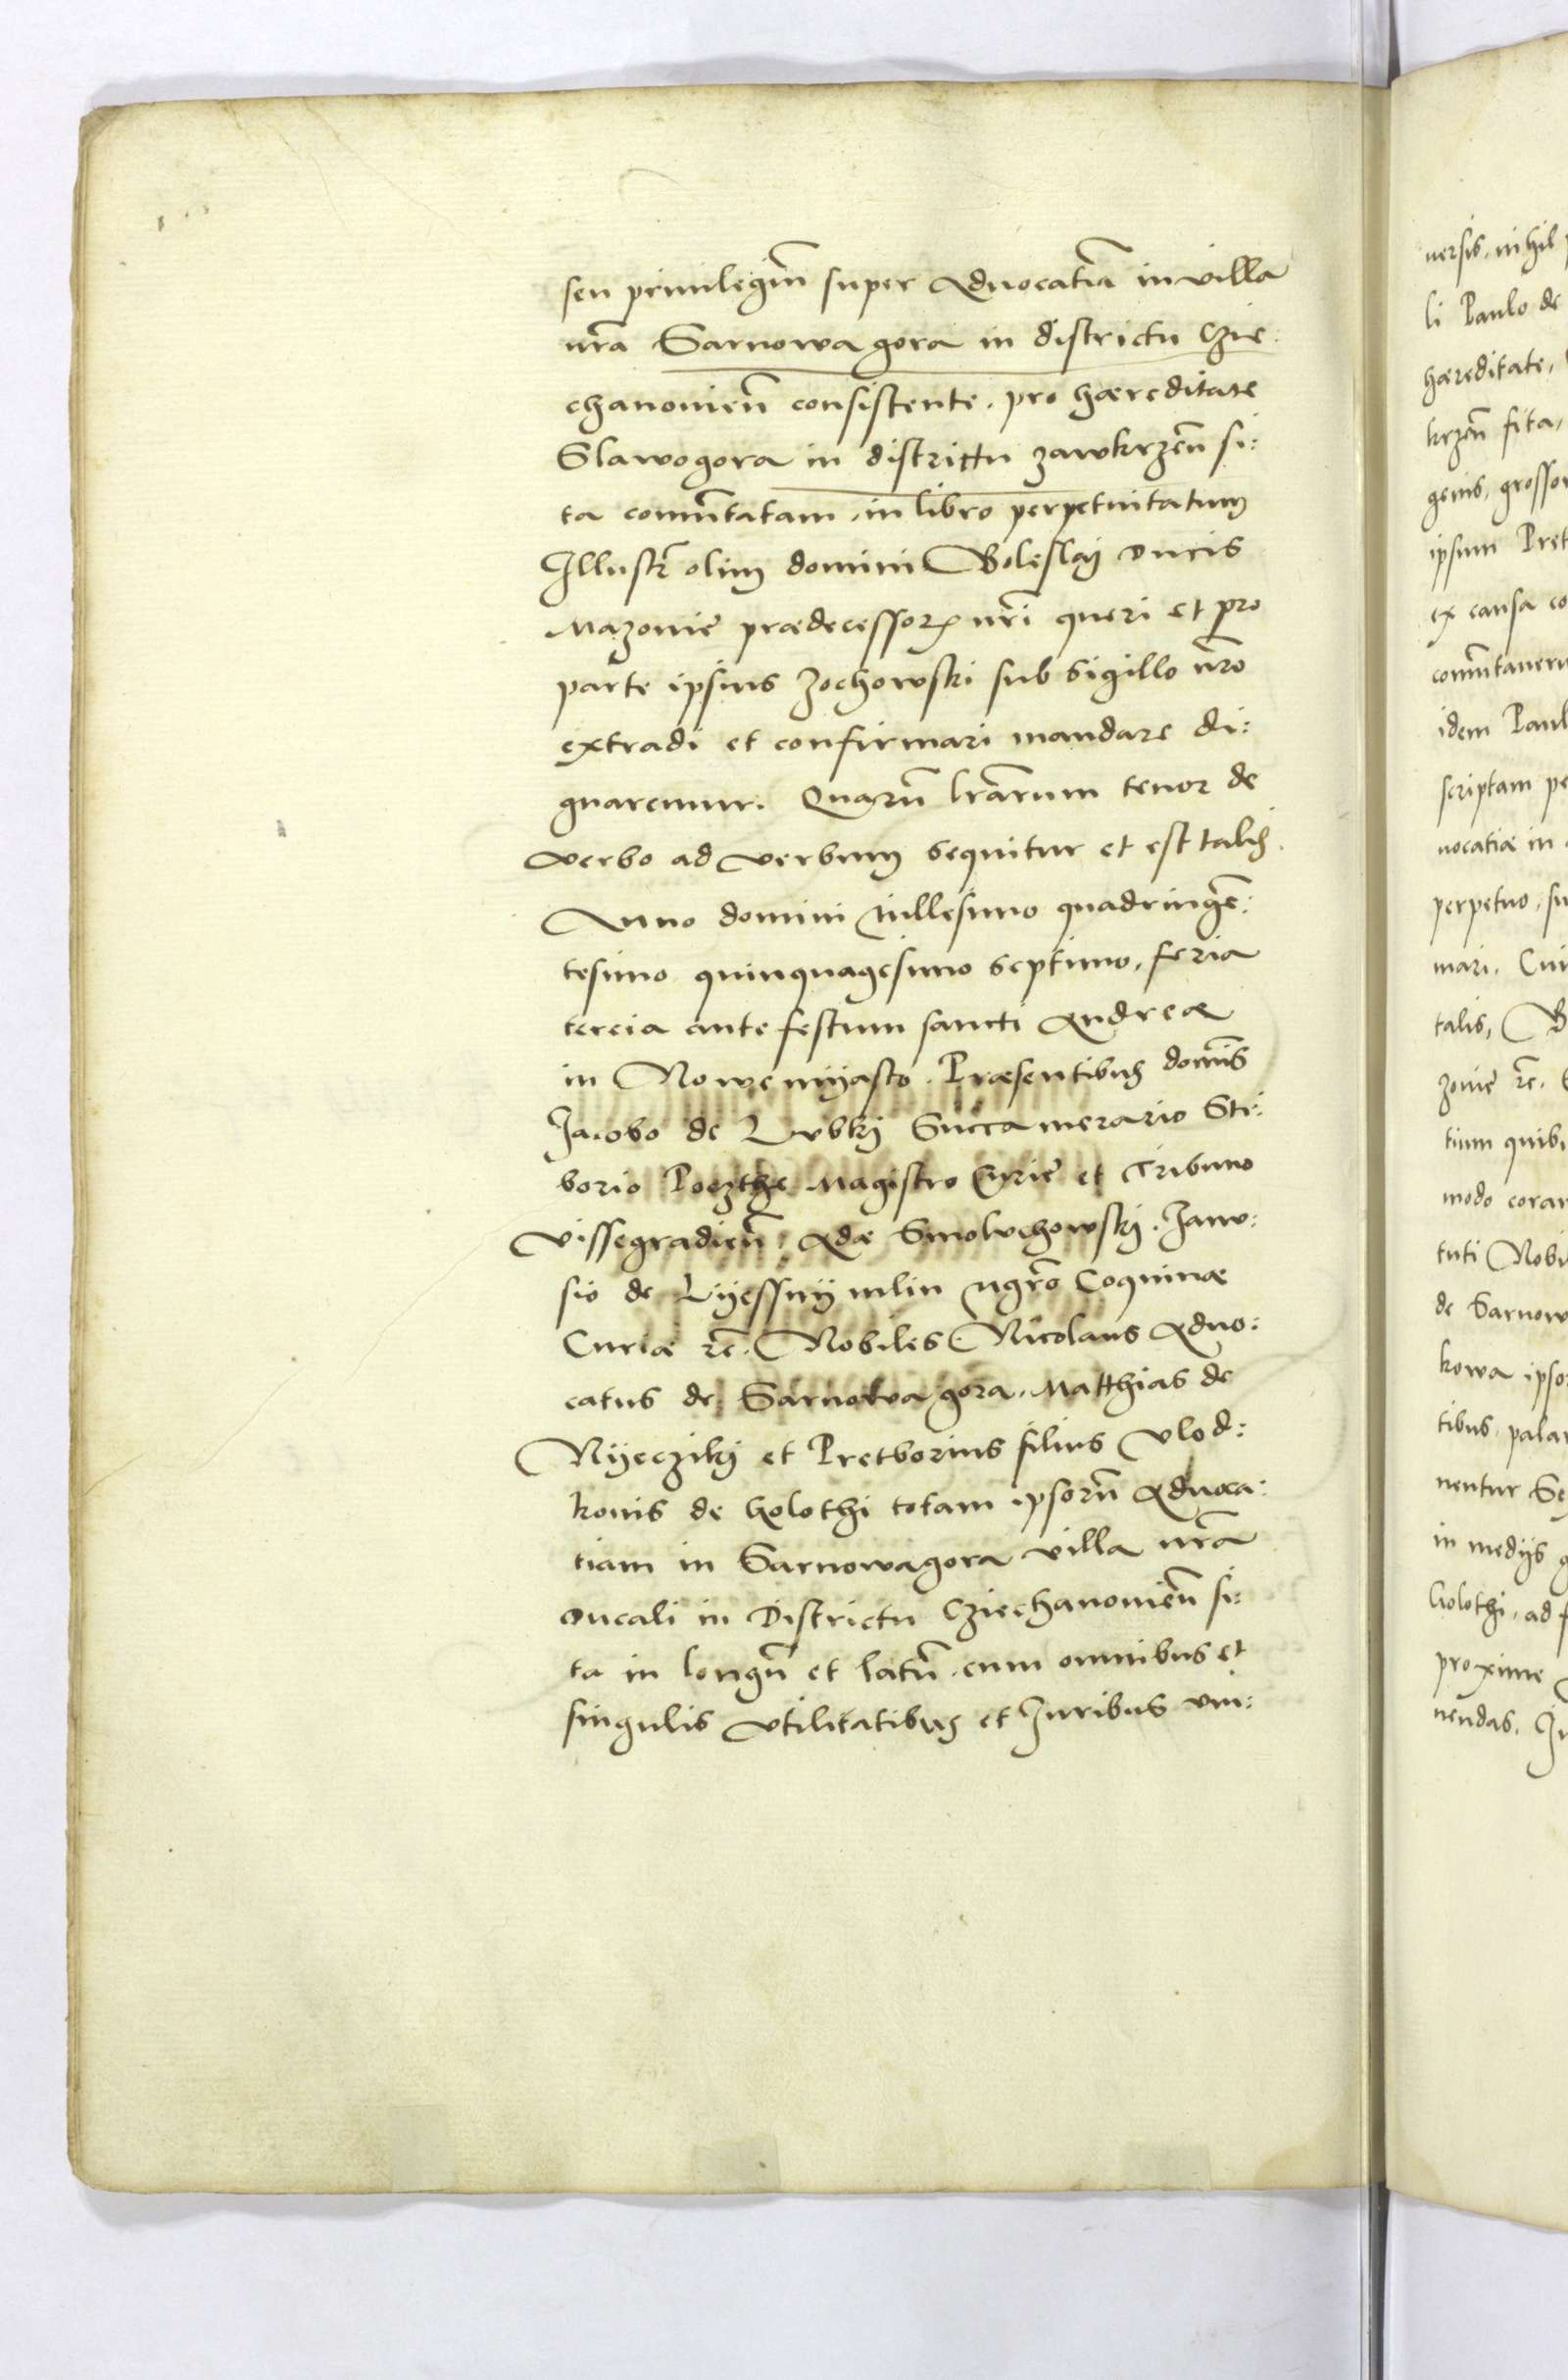 seu priuilegiũ super Aduocatiã in villa
nr̃a Sarnowa gora in districtu Czie:
chanonieñ consistente, pro hæreditate
Slawogora in districtu zawkrzeñ si:
ta com̃utatam, in libro perpetuitatum
Illustr̃ olim domini Boleslaj Ducis
Mazoniẽ prædecessorꝫ nr̃i queri et pro
parte ipsius Zochowski sub sigillo nr̃o
extradi et confirmari mandare di:
gnaremur. Quarũ lr̃arum tenor de
verbo ad verbum sequitur et est talis.
Anno domini Millesimo quadringẽ:
tesimo quinquagesimo septimo, feria
tercia ante festum sancti Andreæ
in Nowemyasto. Præsentibus domĩs
Jacobo de Lubkj Succamerario Sti:
borio Poczthe Magistro Curiẽ et Tribuno
Vissegradieñ, Adæ Smoluchowskj. Janu:
sio de Lyessny mlin mgr̃o Coquinæ
Curiæ ꝛc̃. Nobiles Nicolaus Aduo:
catus de Sarnowa gora, Matthias de
Nyeczikj et Pretborius filius Vlod:
konis de Golothi totam ipsorũ Aduoca:
tiam in Sarnowagora villa nr̃a
Ducali in Districtu Cziechanonieñ si:
ta in longũ et latũ, cum omnibus et
singulis vtilitatibus et Juribus vni:
uersis, nihil
li Paulo de
hæreditate,
krzeñ sita,
genis, grossor
ipsum Pret
ex causa co
com̃utaueru
idem Paul
scriptam pe
uocatiæ in
perpetuo, su
mari. Cui
talis, B
zoniẽ ꝛc̃.
tium quibu
modo coram
tuti Nobi
de Sarnow
kowa ipso
tibus palam
nentur Se
in medijs g
Golothi, ad
proxime
nendas. Ju